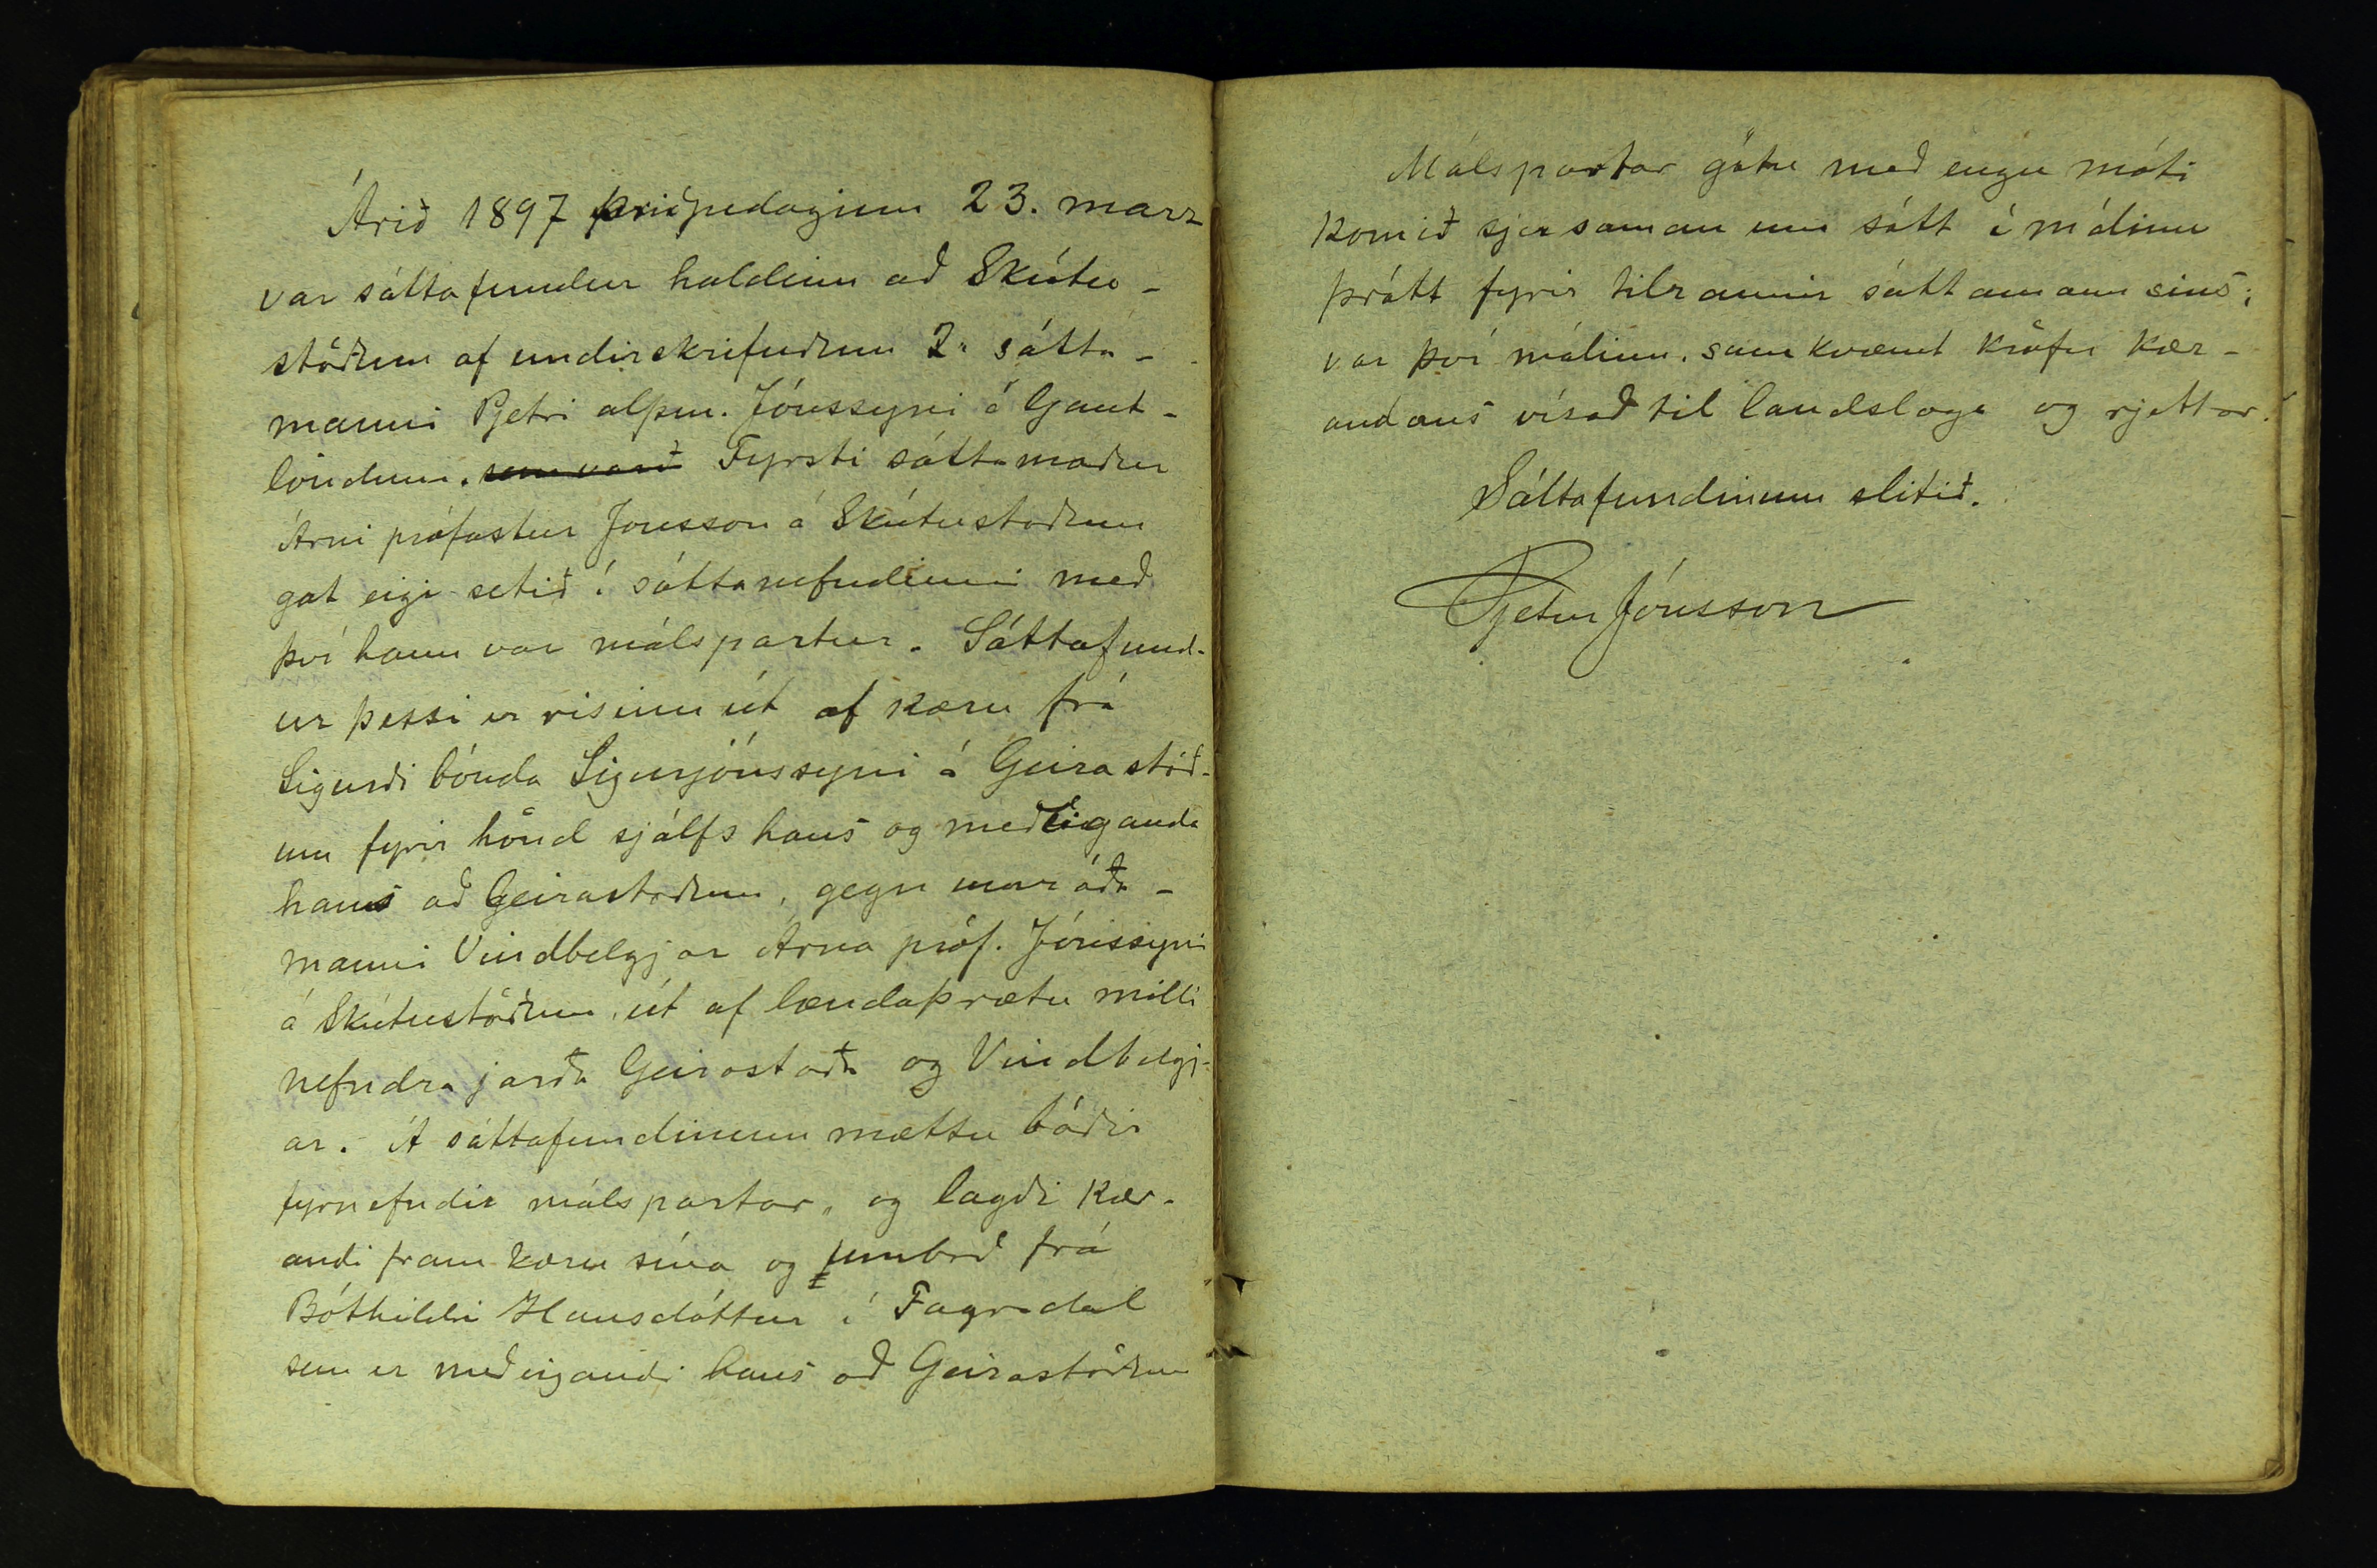 Árið 1897 þriðjudaginn 23. marz
var sáttafundur haldinn að Skútu-
stöðum af undirskrifuðum 2. sátta-
manni Pjetri alþm. Jónssyni á Gaut-
löndum. sem varð Fyrsti sáttamaður
Árni prófastur Jónsson á Skútustöðum
gat eigi setið í sáttanefndinni með
því hann var málspartur. Sáttafund-
ur þessi er risinn út af kæru frá
Sigurði bónda Sigurjónssyni á Geirastöð-
um fyrir hönd sjálfs hans og meðeiganda
hans að Geirastöðum, gegn umráða-
manni Vindbelgjar Árna próf. Jónssyni
á Skútustöðum, út af landaþrætu milli
nefndra jarða Geirastaða og Vindbelgj-
ar. Á sáttafundinum mættu báðir
fyrnefndir málspartar, og lagði kær-
andi fram kæru sína og umboð frá
Bóthildi Hansdóttur í Fagradal
sem er meðeigandi hans að Geirastöðum
Málspartar gátu með engu móti
komið sjer saman um sátt í málinu
þrátt fyrir tilraunir sáttamannsins;
var því málinu, samkvæmt kröfu kær-
andans vísað til landslaga og rjettar.
Sáttafundinum slitið.
Pjetur Jónsson